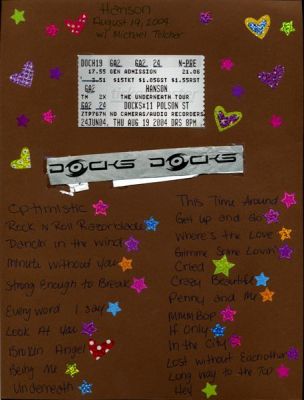 Hanson
August 19, 2004
w/ Michael Tolcher
DOCH19 GA2 GA2 24 N-PRE
17.55 GEN ADMISSION 21.06
3.51 $1STKT $1.05GST $1.55RST
GA2 HANSON
TM 2X THE UNDERNEATH TOUR
GA2 24 DOCKS*11 POLSON ST
ZTP767N NO CAMERAS/AUDIO RECORDERS
24JUN04, THU AUG 19 2004 DRS 8PM
DOCKS DOCKS
Optimistic
Rock N Roll Razorblade
Dancin in the wind
Minute Without You
Strong Enough to Break
Every word I say
Look At You
Broken Angel
Being Me
Underneath
This Time Around
Get up and Go
Where's the Love
Gimme Some Lovin'
Cried
Crazy Beautiful
Penny and Me
MMMBop
If Only
In the City
Lost without Each other
Long way to the Top
Hey